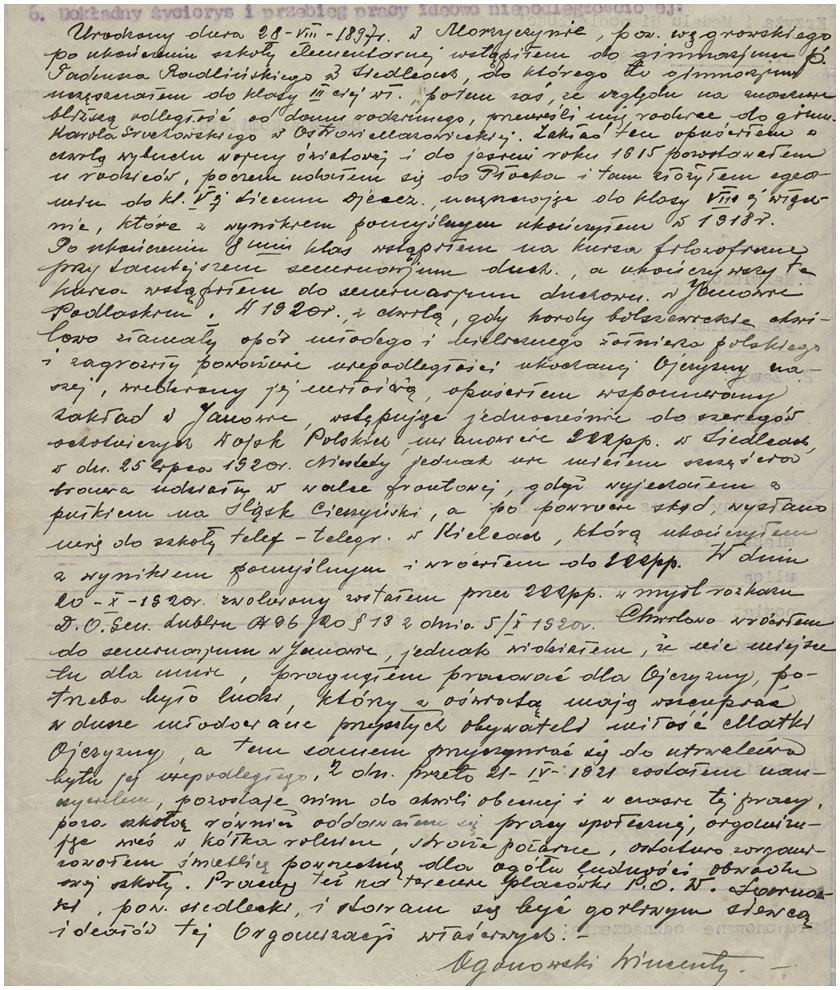 6. Dokładny życiorys i przebieg pracy ideowo niepodległościowej:
Urodzony dnia 28-VIII-1897r. w Morzyczynie, pow. węgrowskiego
po ukończeniu szkoły elementarnej wstąpiłem do gimnazjum p.
Tadeusza Radlińskiego w Siedlcach, do którego to gimnazjum
uczęszczałem do klasy III ciej wł., potem zaś, ze względu na znacznie
bliższą odległość od domu rodzinnego, przenieśli mię rodzice do gimn.
Karola w Ostrowi Mazowieckiej. Zakład ten opuściłem z
chwilą wybuchu wojny światowej i do jesieni roku 1915 pozostawałem
u rodziców, poczem udałem się do Płocka i tam złożyłem egza-
min do kl. Liceum Djecez., uczęszczając do klasy VIII ej włącz-
nie, które z wynikiem pomyślnym ukończyłem w 1918r.
Po ukończeniu 8 miu klas wstąpiłem na kursa filozoficzne
przy tamtejszem seminarjum duch., a ukończywszy te
kursa wstąpiłem do seminarjum duchown. w Janowie
Podlaskim. W 1920r., z chwilą, gdy hordy bolszewickie chwi-
lowo złamały opór młodego i walecznego żołnierza polskiego
i zagroziły poważnie niepodległości ukochanej Ojczyzny na-
szej, wiedziony jej miłością, opuściłem wspomniany
zakład w Janowie, wstępując jednocześnie do szeregów
ochotniczych Wojsk Polskich, mianowicie 22 pp. w Siedlcach,
w dn. 25 lipca 1920r. Niestety jednak nie miałem szczęścia
brania udziału w walce frontowej, gdyż wyjechałem z
pułkiem na Śląsk Cieszyński, a po powrocie stąd, wysłano
mię do szkoły telef-telegr. w Kielcach, którą ukończyłem
z wynikiem pomyślnym i wróciłem do 22 pp. W dniu
20-X-1920r. zwolniony zostałem przez 22 pp. w myśl rozkazu
D.O.Gen. Lublin 96/20 § 13 z dnia 5/X 1920r. Chwilowo wróciłem
do seminarjum w Janowie, jednak widziałem, że nie miejsce
tu dla mnie, pragnąłem pracować dla Ojczyzny, po-
trzeba było ludzi, którzy z oświatą mają wszczepiać
w dusze młodociane przyszłych obywateli miłość Matki
Ojczyzny, a tem samem przyczyniać się do utrwalenia
bytu jej niepodległego. Z dn. przeto 21-IV-1921 zostałem nau-
czycielem, pozostaję nim do chwili obecnej i w czasie tej pracy,
poza szkołą również oddawałem się pracy społecznej, organizu-
jąc wieś w kółka rolnicze, straże pożarne, ostatnio zorgani-
zowałem świetlicę powszechną dla ogółu ludności obwodu
swej szkoły. Pracuję też na terenie placówki P.O.W.
pow. siedlecki, i staram się być gorliwym siewcą
ideałów tej Organizacji właściwych. -
Oganowski Wincenty. -